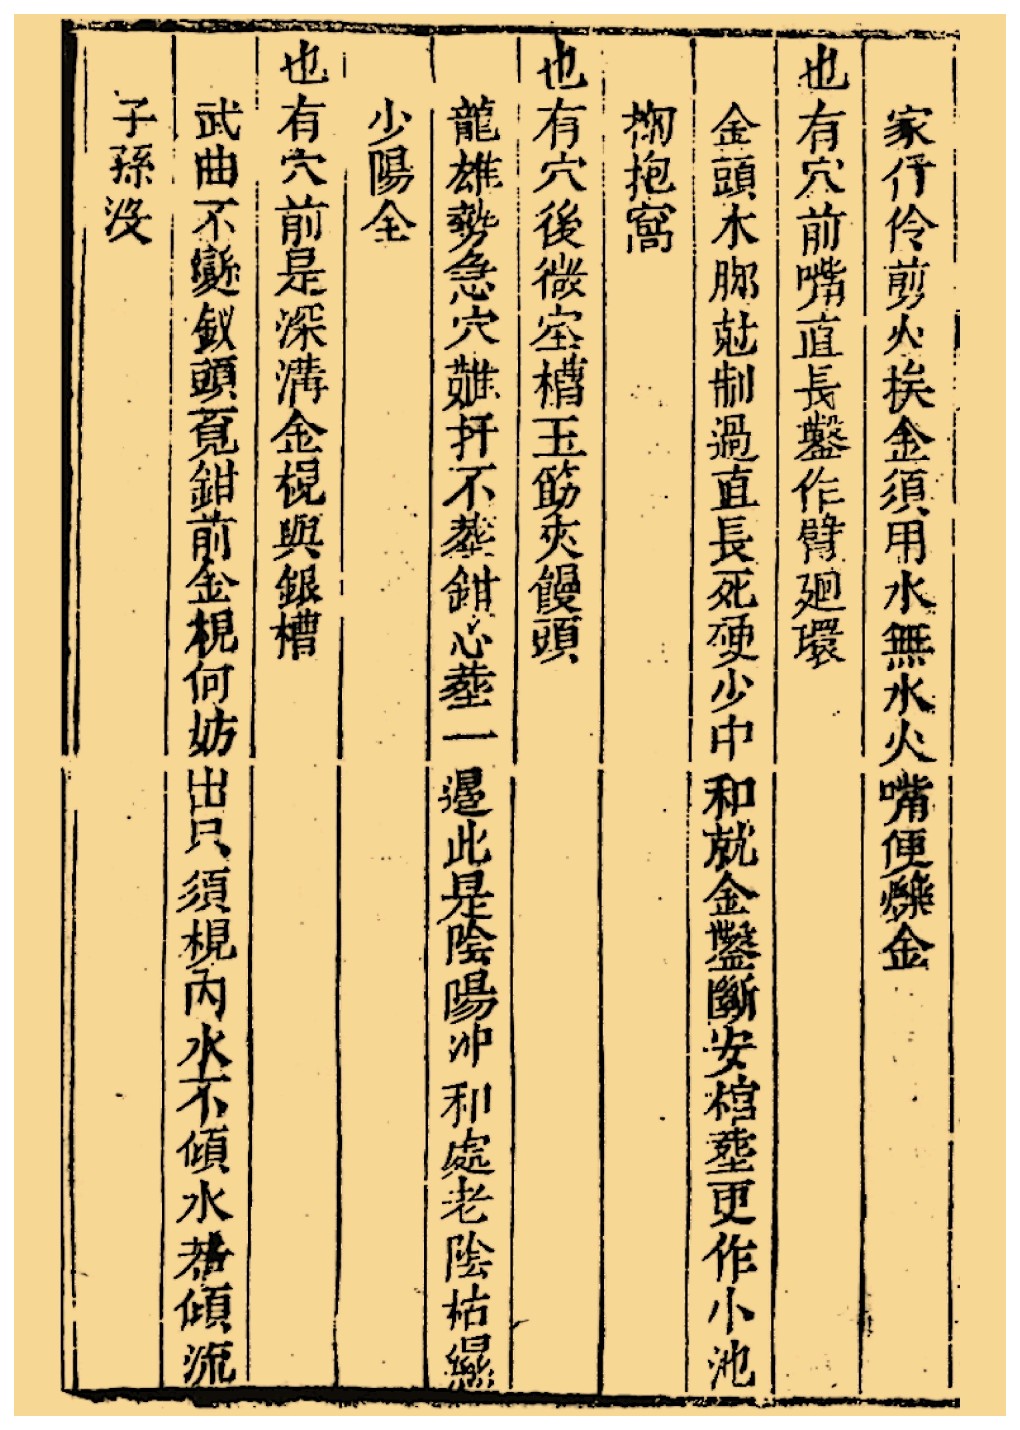 家行伶剪火挨金須用水無水火嘴便爍金
也有穴前嘴直長鑿作臂廻環
金頭木腳尅制過直長死硬少中和就金鑿斷安棺塟更作小池
掬抱窩
也有穴後微空槽玉筯夾饅頭
龍雄勢急穴難扦不塟鉗心塟一邊此是陰陽冲和處老陰枯
少陽全
也有穴前是深溝金梘與銀槽
武曲不變釵頭覔鉗前金梘何妨出只須梘內水不傾水若傾流
子孫没